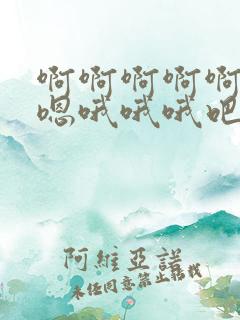 啊啊啊啊啊
嗯哦哦哦吧
阿維亞諾
未经同意禁止转载